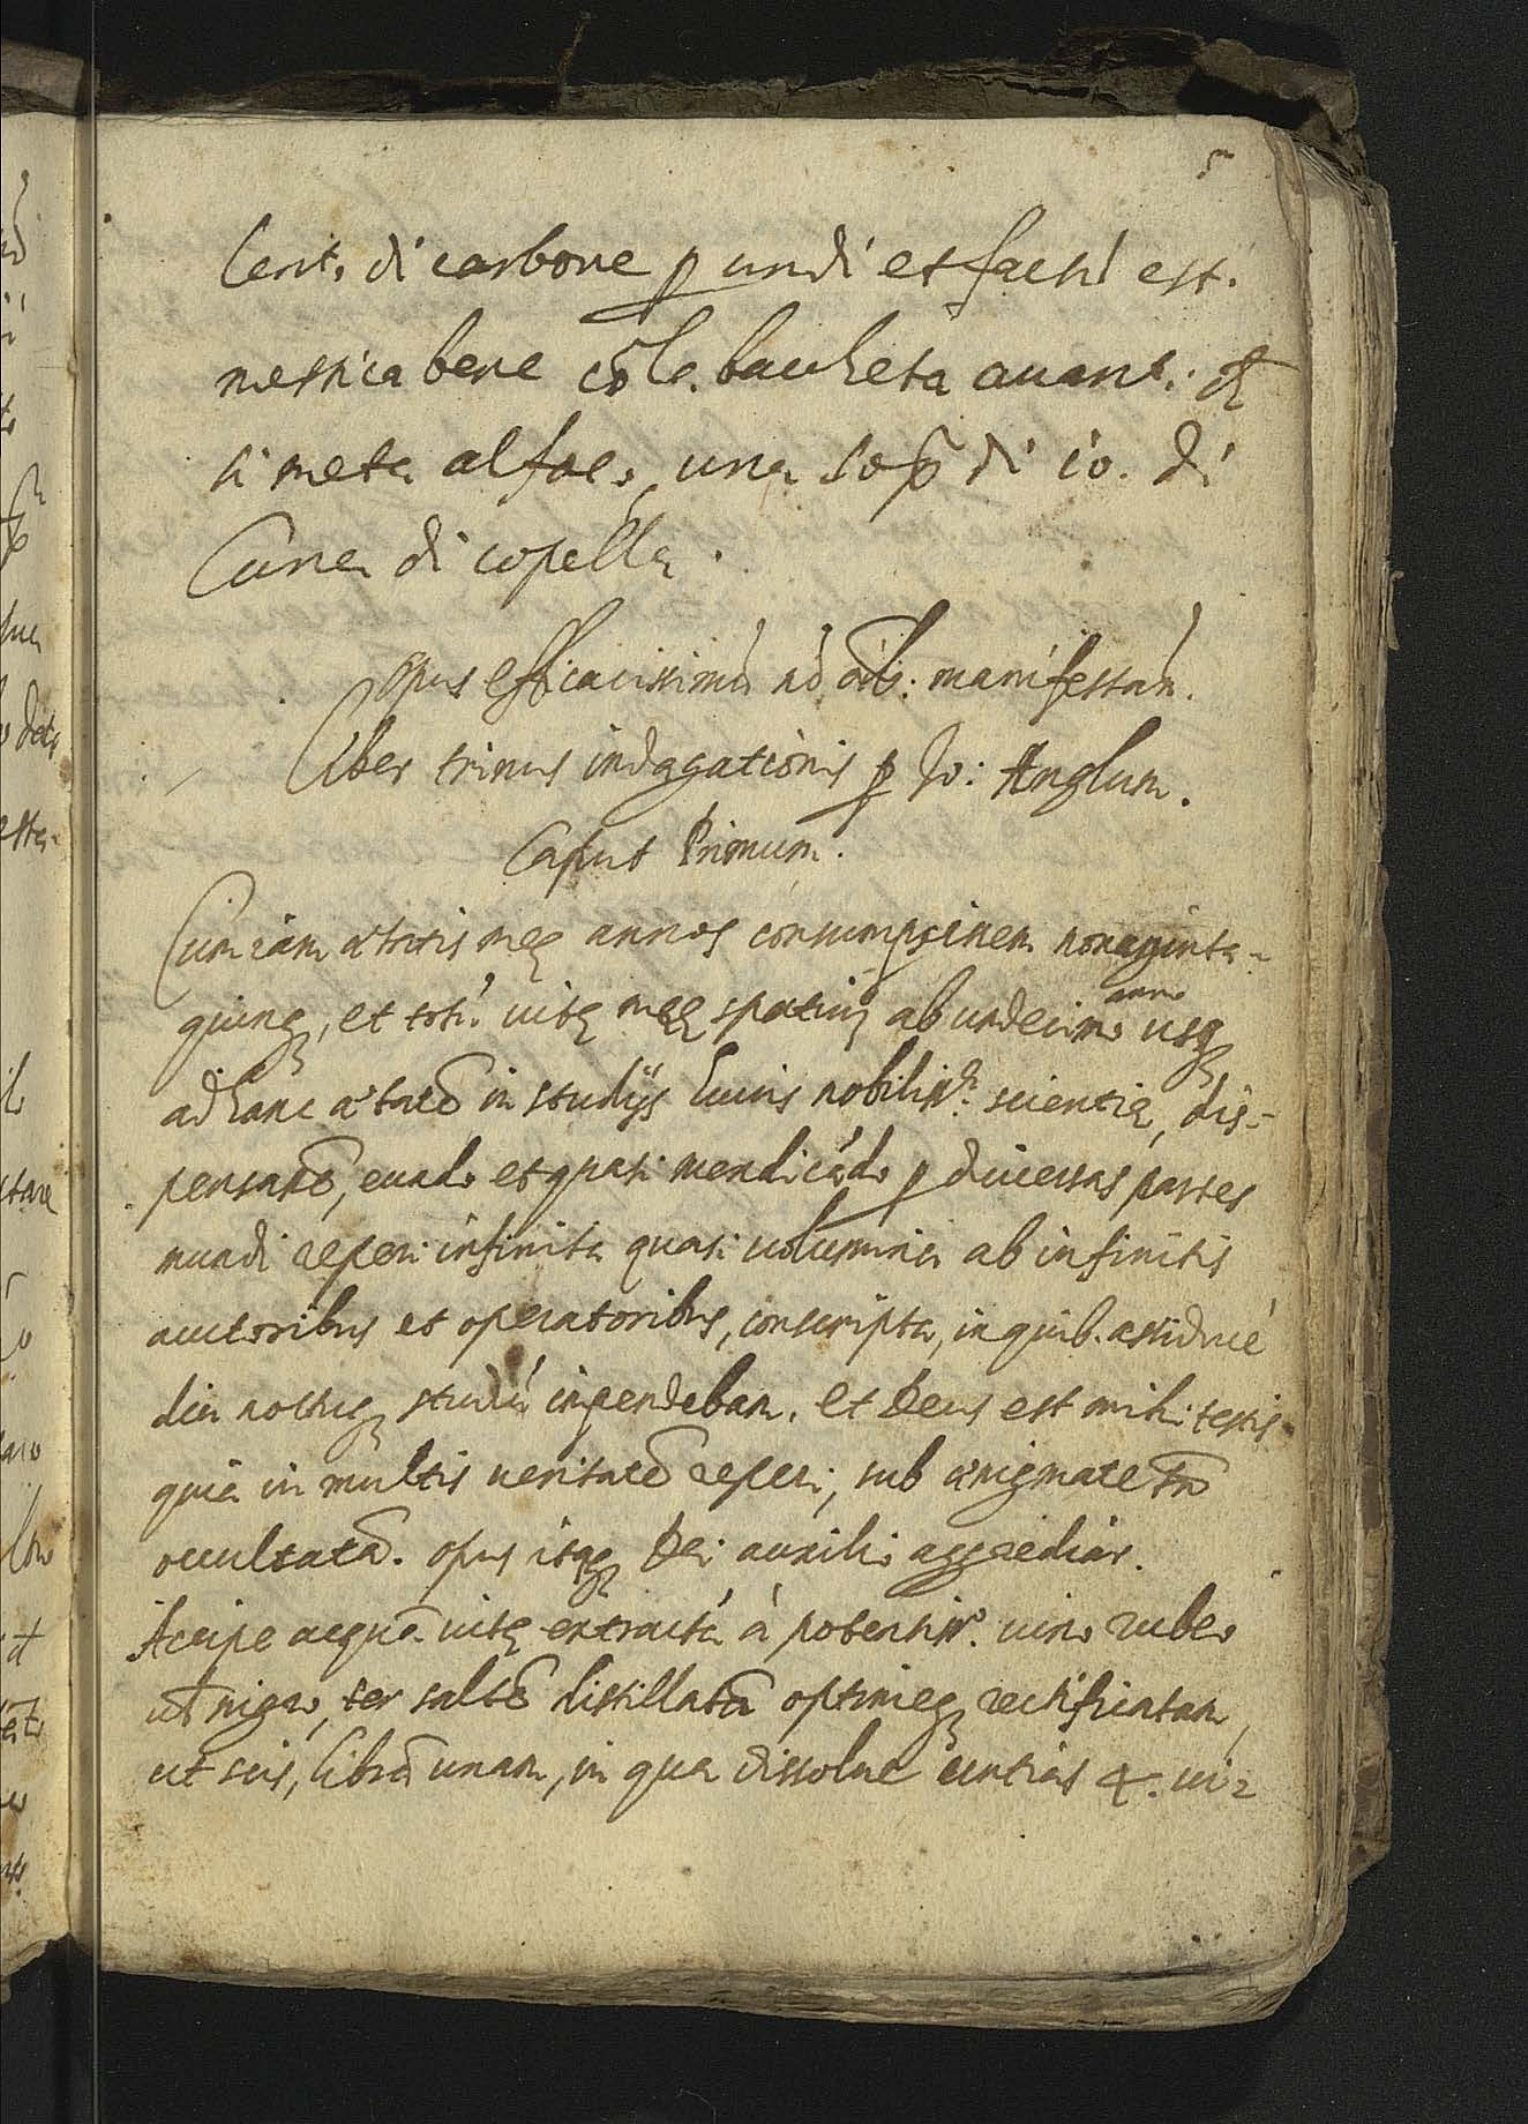 5
lento di carbone p undi et fachi est.
mestica bene cō la bacheta auanti ch
si meta al foco, una sop̄ di io. di
Luna di copella.
Opus efficacissimù ad oīb: manifestań.
Liber trinus indagationis p Jo: Anglum.
Caput Primum.
Cum iam ætatis meę annos consumpsissem nonaginta-
quinq, et totú uitę meę spatiú ab undecimo anno usq
ad hanc ætatē in studijs huius nobiliss.ę scientię, dis-
pensatē, eundo et quasi mendicādo p diuersas partes
mundi reperi infinita quasi uolumina ab infinitis
auctoribus et operatoribus, conscripta, in quib. assidué
diu noctuq studiú inpendebam. et Deus est mihi testis
quia in multis ueritatē reperi, sub ænigmate tn̄
ocultatā. opus itaq Dei auxilio aggrediar.
Accipe acquā uitę extractá à potentiss.o uino rubeo
uł nigro, ter saltē distillatā optimeq rectificatam,
ut scis, librā unam, in qua dissolue untias 4. ui-